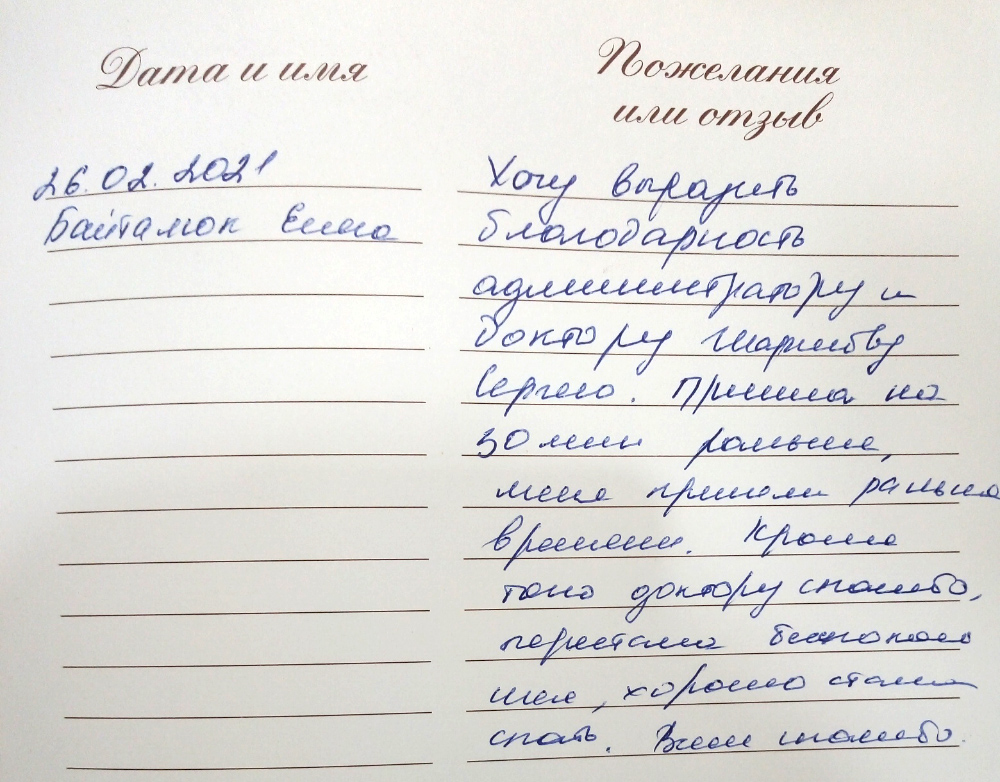 Дата и имя
Пожелания
или отзыв
26.02.2021
Байтамон Елена
Хочу выразить
благодарность
администратору и
доктору Шарипову
Сергею. Пришла на
30 мин раньше,
меня приняли раньше
времени. Кроме
того доктору спасибо,
перестала беспокоить
шея, хорошо стали
спать. Всем спасибо.